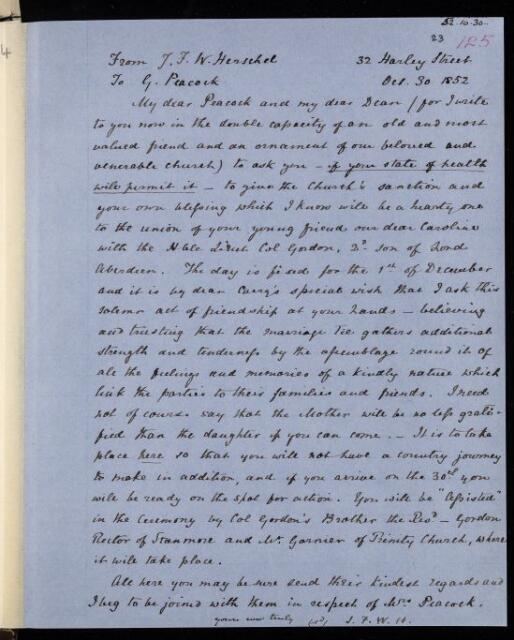 52.10.30.
23 125
From J. F. W. Herschel 32 Harley Street
To G. Peacock Oct. 30 1852
My dear Peacock and my dear Dean (for I write
to you now in the double capacity of an old and most
valued friend and an ornament of our beloved and
venerable church) to ask you – if your state of health
will permit it – to give the Church's sanction and
your own blessing which I know will be a hearty one
to the union of your young friend our dear Caroline
with the Hble Lieut Col Gordon, 3d son of Lord
Aberdeen. The day is fixed for the 1st of December
and it is my dear Carry's special wish that I ask this
solemn act of friendship at your hands – believing
and trusting that the marriage tie gathers additional
strength and tenderness by the assemblage round it of
all the feelings and memories of a kindly nature which
link the parties to their families and friends. I need
not of course say that the Mother will be no less grati-
fied than the daughter if you can come. – It is to take
place here so that you will not have a country journey
to make in addition, and if you arrive on the 30th you
will be ready on the spot for action. You will be "assisted"
in the Ceremony by Col Gordon's Brother the Revd – Gordon
Rector of Stanmore and Mr Garnier of Trinity Church, where
it will take place.
All here you may be sure send their kindest regards and
I beg to be joined with them in respect of Mrs Peacock.
yours ever truly (sd) J. F. W. H.